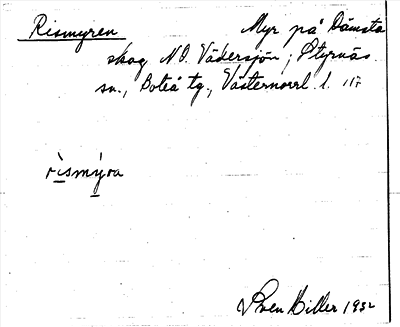 Rismyren Myr på Dämsta
skog NO. Vädersjön; Styrnäs
sn., Boteå tg., Västernorrl. l.
rismýra
Sven Hiller 1932